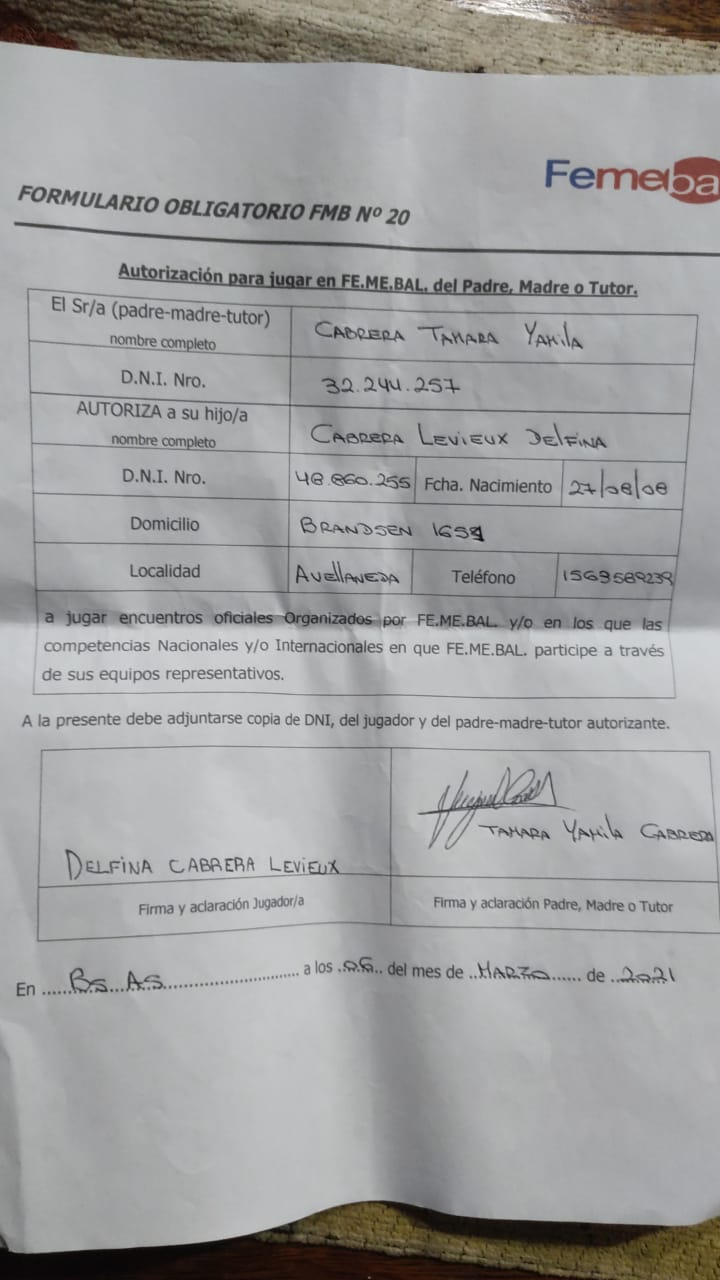 Femeba
FORMULARIO OBLIGATORIO FMB Nº 20
Autorización para jugar en FE.ME.BAL. del Padre, Madre o Tutor.
El Sr/a (padre-madre-tutor)
nombre completo
CABRERA TAMARA YAMILA
D.N.I. Nro.
32.244.257
AUTORIZA a su hijo/a
nombre completo
CABRERA LEVIEUX DELFINA
D.N.I. Nro.
48.860.255
Fcha. Nacimiento
27/08/08
Domicilio
BRANDSEN
Localidad
AVELLANEDA
Teléfono
1569589239
a jugar encuentros oficiales Organizados por FE.ME.BAL. y/o en los que las
competencias Nacionales y/o Internacionales en que FE.ME.BAL. participe a través
de sus equipos representativos.
A la presente debe adjuntarse copia de DNI, del jugador y del padre-madre-tutor autorizante.
DELFINA CABRERA LEVIEUX
TAMARA YAMILA CABRERA
Firma y aclaración Jugador/a
Firma y aclaración Padre, Madre o Tutor
En ......Bs...As........................... a los .06.. del mes de ..MARZO...... de ..2021